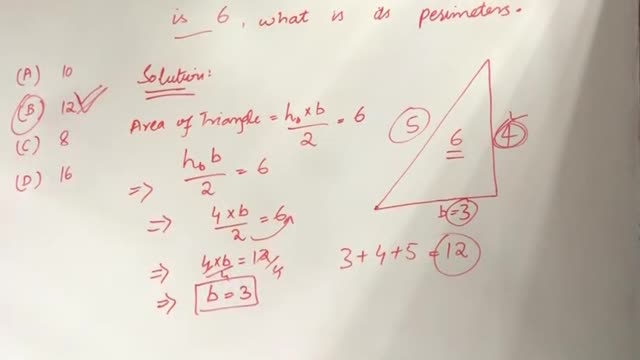 is 6, what is its perimeters.
(A) 10
(B) 12
(C) 8
(D) 16
Solution:
Area of Triangle = h_b × b / 2 = 6
=> h_b b / 2 = 6
=> 4 × b / 2 = 6
=> 4 × b / 4 = 12/4
=> b = 3
5
6
4
b = 3
3 + 4 + 5 = 12